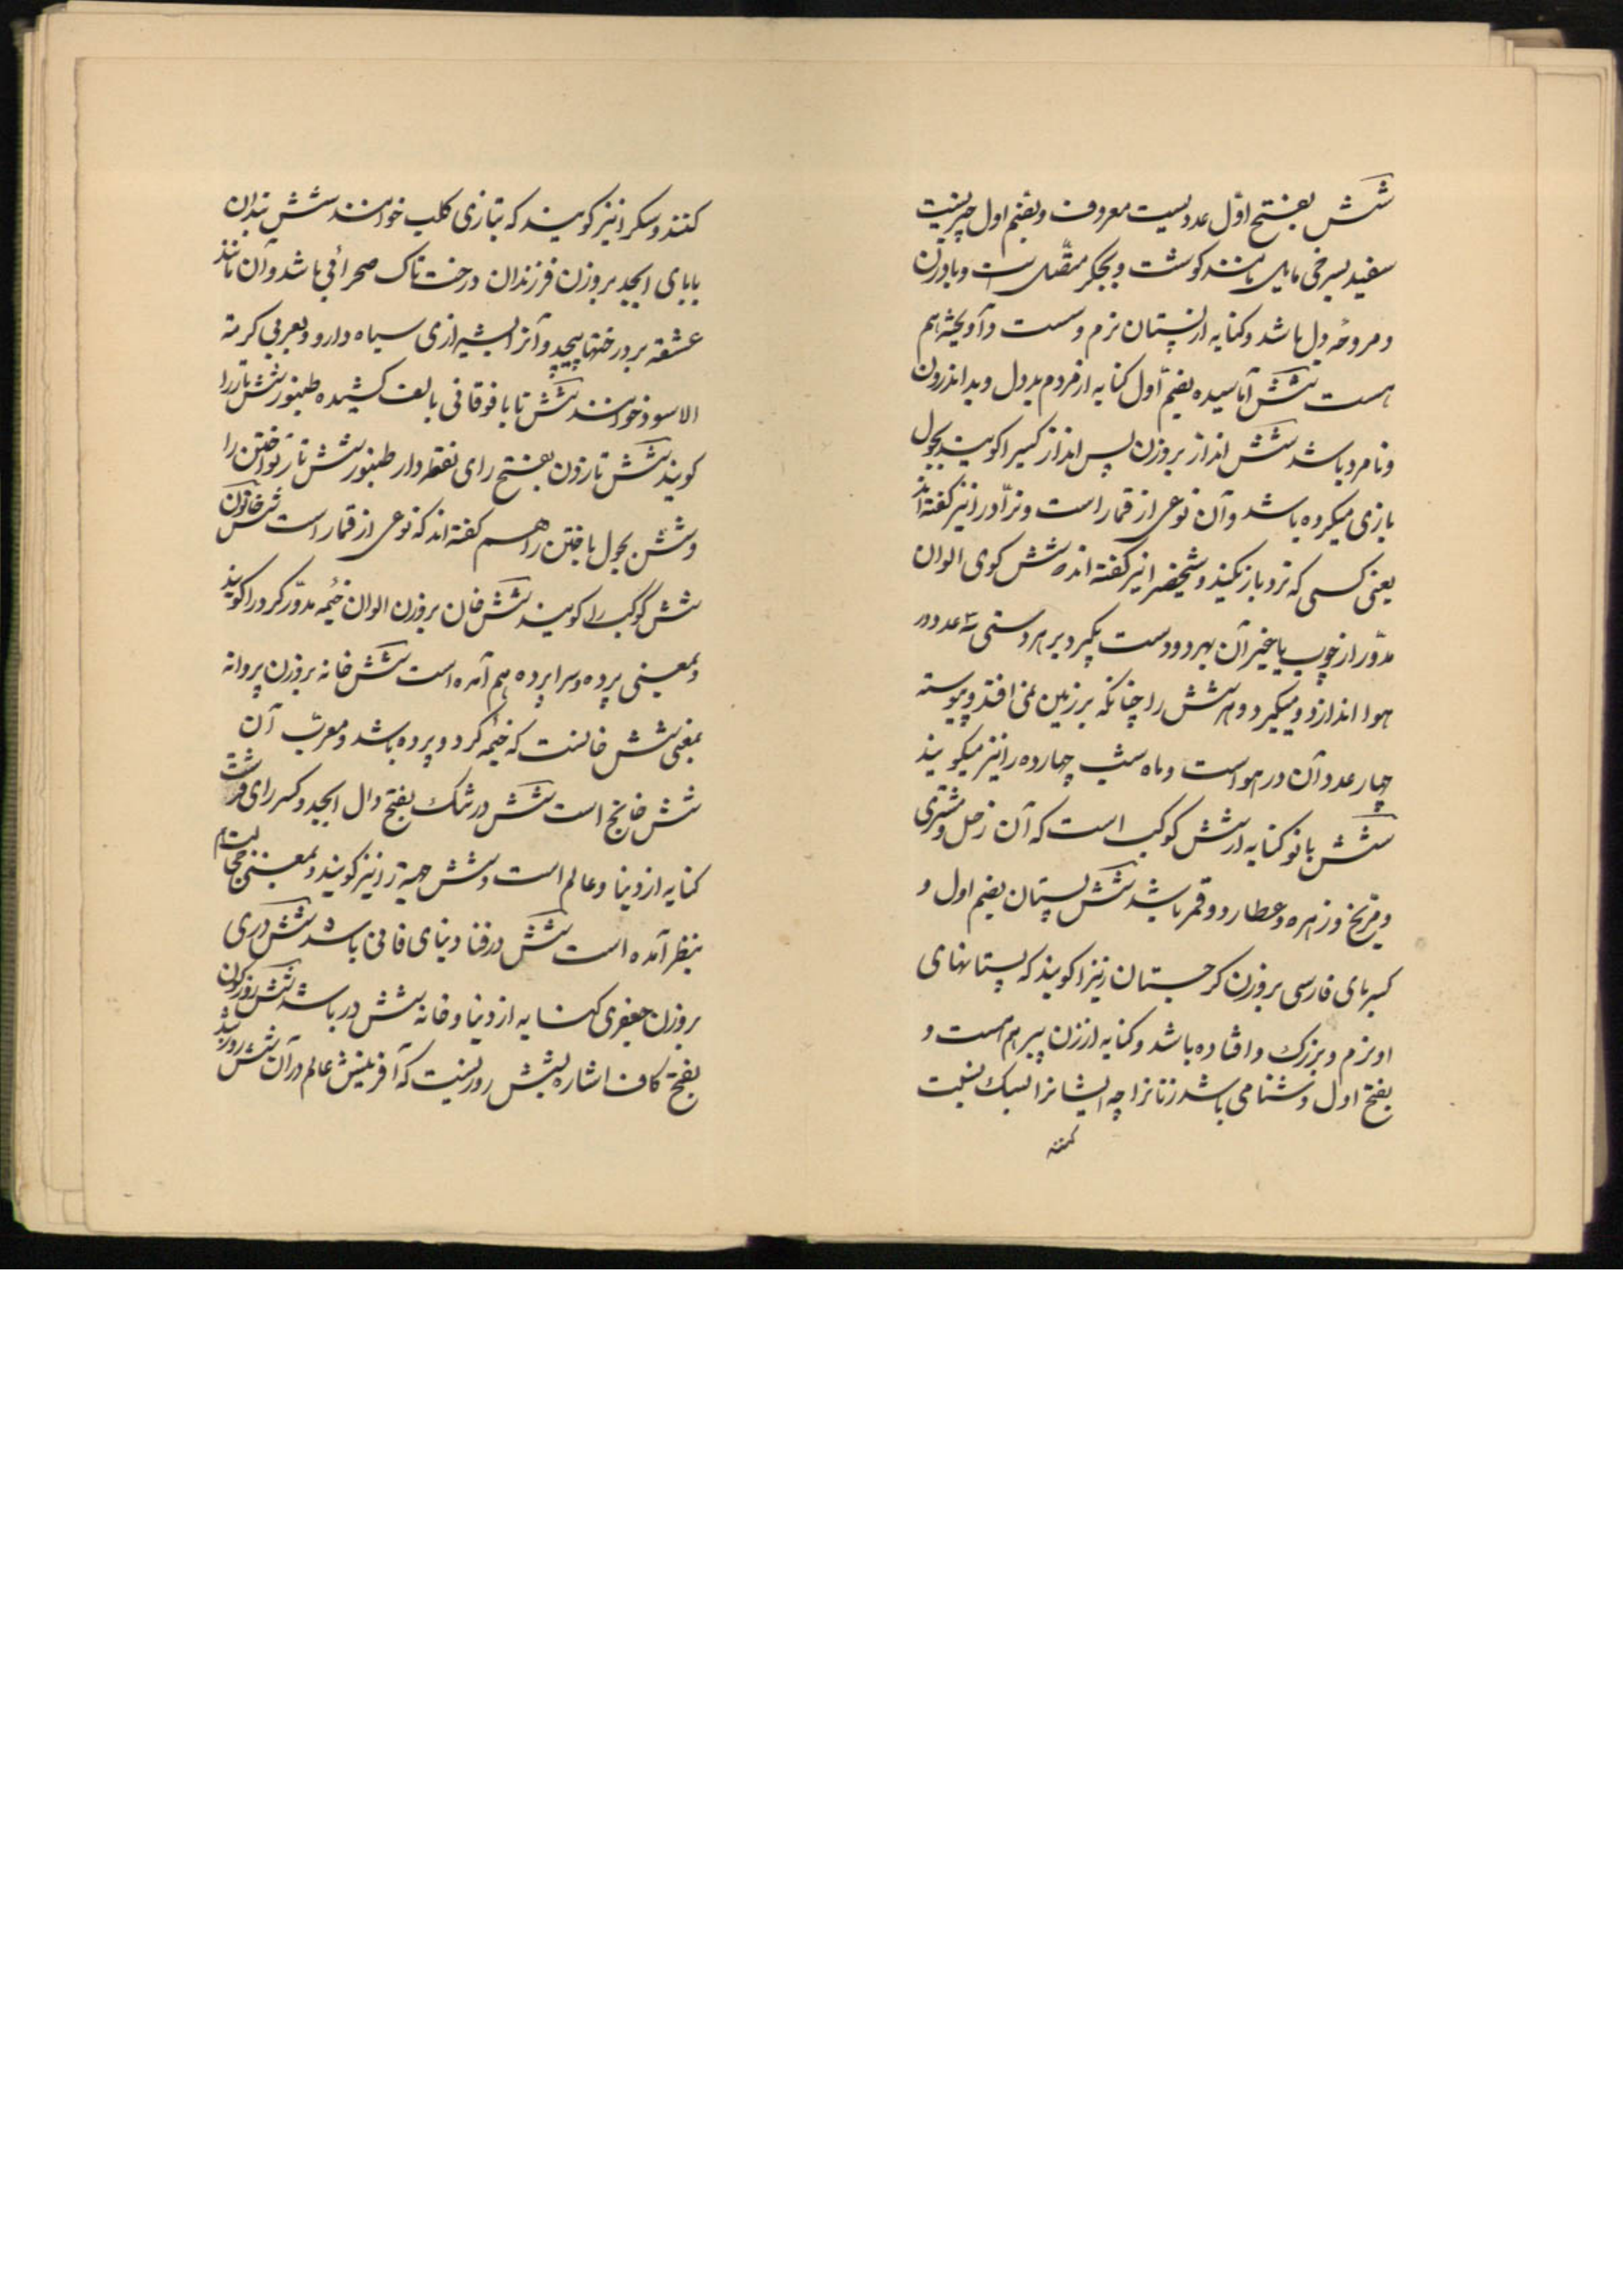 شش بفتح اول عددیست معروف و بضم اول چیزیست
سفید بسرخی مایل مانند کوشت و بجکر متصل است و بادزن
و مروحه دل باشد و کنایه از پستان نرم و سست و آویخته هم
هست شش آماسیده بضم اول کنایه از مردم بددل و بداندرون
و نامرد باشد شش انداز بروزن پس انداز کسیرا کویند بجول
بازی میکرده باشد و آن نوعی از قمار است و نرّاد را نیز کفته اند
یعنی کسی که نرد بازی کند و شخصیرا نیز کفته اند شش کوی الوان
مدوّر از چوب یا غیر آن بهر دو دست بگیرد بر هر دستی سه عدد در
هوا اندازد و میگیرد و هر شش را چنانکه بر زمین نمی افتد و پیوسته
چهار عدد آن در هواست و ماه شب چهارده را نیز میکویند
شش بانو کنایه از شش کوکب است که آن زحل و مشتری
و مرّیخ و زهره و عطارد و قمر باشد شش پستان بضم اول و
کسر بای فارسی بروزن کرجستان زنیرا کویند که پستانهای
او نرم و بزرک و افتاده باشد و کنایه از زن پیر هم هست و
بفتح اول دشنامی باشد زنانرا چه ایشانرا بسک نسبت
کنند و سکرا نیز کویند که بتازی کلب خوانند شش بندان
با بای ابجد بروزن فرزندان درخت تاک صحرائی باشد و آن مانند
عشقه بر درختها پیچد و آنرا بشیرازی سیاه دارو و بعربی کرمة
الاسود خوانند شش تا با فوقانی بالف کشیده طنبور شش تار را
کویند شش تا زدن بفتح زای نقطه دار طنبور شش تا نواختن را
و شش بجول باختن را هم کفته اند که نوعی از قمار است شش خاتون
شش کوکب را کویند شش خان بروزن الوان خیمه مدوّر کرد را کویند
و بمعنی پرده و سراپرده هم آمده است شش خانه بروزن پروانه
بمعنی شش خانست که خیمه کرد و پرده باشد و معرّب آن
شش خانج است شش در تنک بفتح دال ابجد و کسر رای قرشت
کنایه از دنیا و عالم است و شش جهت را نیز کویند و بمعنی
بنظر آمده است شش در فنا دنیای فانی باشد شش دری
بروزن جعفری کنایه از دنیا و خانه شش در باشد شش روز کون
بفتح کاف اشاره بشش روزیست که آفرینش عالم در آن شش روز شد